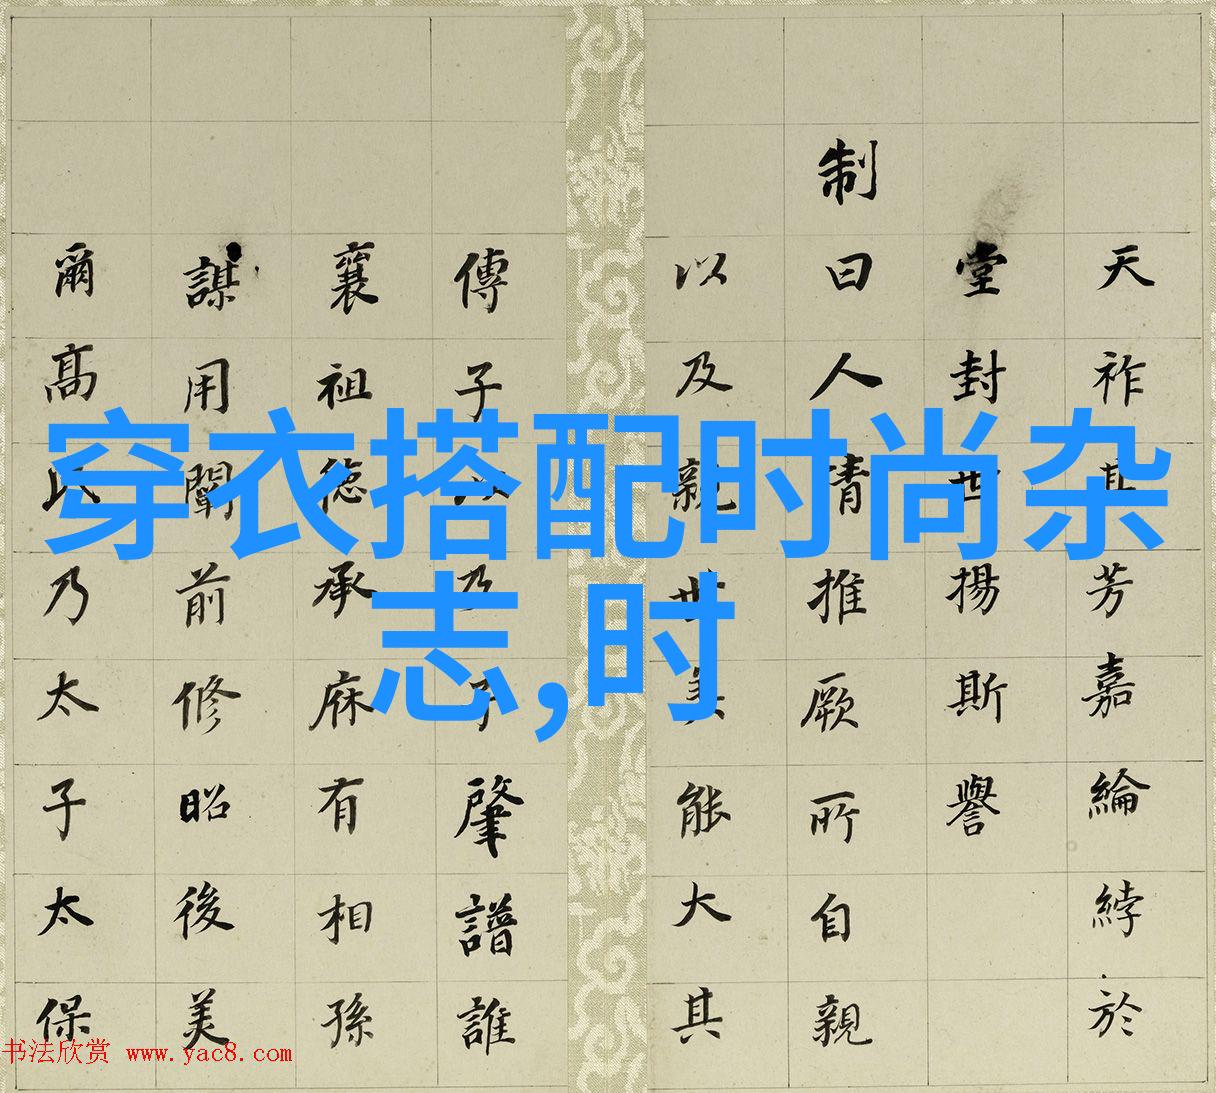 天祚其芳嘉綸綍於
堂封世揚斯譽
制
曰人情推厥所自親
以及親世美能大其
傳子以乃子肇譜誰
襄祖德承庥有相孫
謀用闡前修昭後美
爾高氏乃太子太保
穿衣搭配时尚杂
志,时
书法欣赏 www.yac8.com